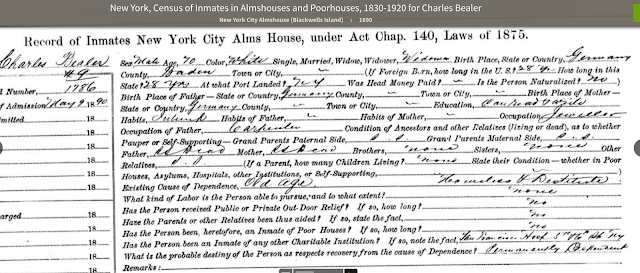 New York, Census of Inmates in Almshouses and Poorhouses, 1830-1920 for Charles Bealer
New York City Almshouse (Blackwells Island) › 1890
Record of Inmates New York City Alms House, under Act Chap. 140, Laws of 1875.
Charles Bealer
Sex, Male Age, 70 Color, White Single, Married, Widow, Widower, Widower Birth Place, State or Country, Germany
#9
County, Baden Town or City, " (If Foreign Born, how long in the U.S.? 28 yrs How long in this
l Number, 1786
State? 28 yrs At what Port Landed? N.Y. Was Head Money Paid? " Is the Person Naturalized? No )
Birth Place of Father — State or Country, Germany County, " Town or City, " Birth Place of Mother —
Admission, May 9 1890
State or Country, Germany County, " Town or City, " Education, Can Read & Write
mitted 18
Habits, Habits of Father, " Habits of Mother, " Occupation, Jeweller
18
Occupation of Father, Carpenter Condition of Ancestors and other Relatives (living or dead), as to whether
18
Pauper or Self-Supporting — Grand Parents Paternal Side, S.S. Grand Parents Maternal Side, S.S.
18
Father, Mother, Brothers, none Sisters, none Other
18
Relatives, (If a Parent, how many Children Living? none State their Condition — whether in Poor
18
Houses, Asylums, Hospitals, other Institutions, or Self-Supporting,
18
Existing Cause of Dependence, Old age Homeless & Destitute
What kind of Labor is the Person able to pursue, and to what extent? none
Has the Person received Public or Private Out-Door Relief? If so, how long? no
arged 18
Have the Parents or other Relatives been thus aided? If so, state the fact, no
18
Has the Person been, heretofore, an Inmate of Poor Houses? If so, how long? no
18
Has the Person been an Inmate of any other Charitable Institution? If so, note the fact, San Francisco Hosp
18
What is the probable destiny of the Person as respects recovery from the cause of Dependence? Permanently Dependent
18
Remarks: